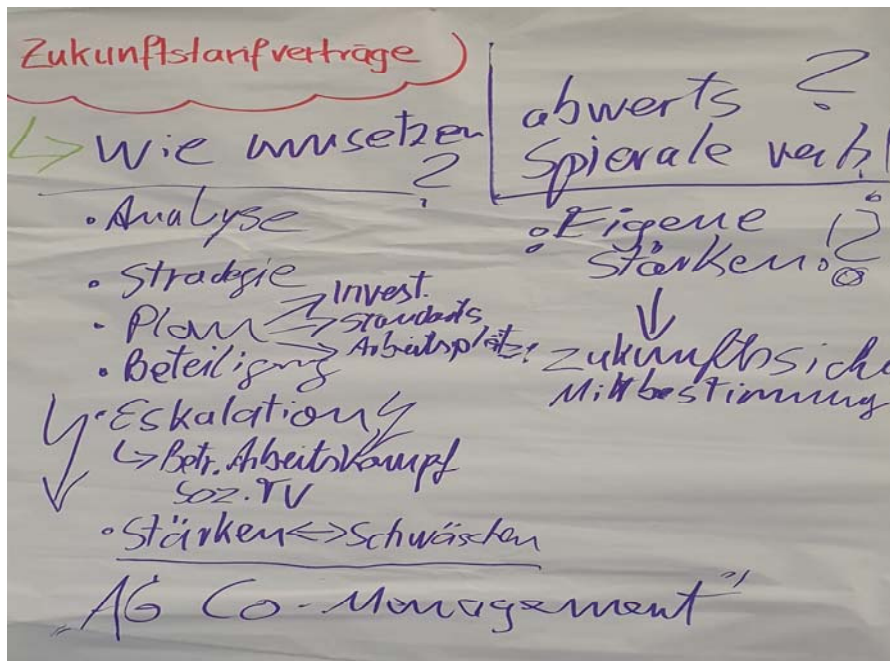 Zukunftstarifverträge
↳ Wie umsetzen ?
• Analyse
• Stradegie
• Plan → Invest.
→ Standards
→ Arbeitsplätze
• Beteiligung
• Eskalation
↳ Betr. Arbeitskampf
Soz. TV
• Stärken <-> Schwächen
„AG Co-Management"
abwerts ?
Spierale
• Eigene
Stärken !?
↓
Zukunfts
Mitbestimmung